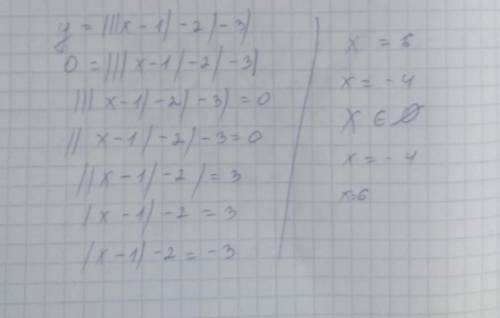 y = |||x - 1| - 2| - 3|
0 = ||| x - 1| - 2| - 3|
||| x - 1| - 2| - 3| = 0
|| x - 1| - 2| - 3 = 0
||x - 1| - 2| = 3
|x - 1| - 2 = 3
|x - 1| - 2 = -3
x = 6
x = - 4
X ∈ ∅
x = - 4
x=6